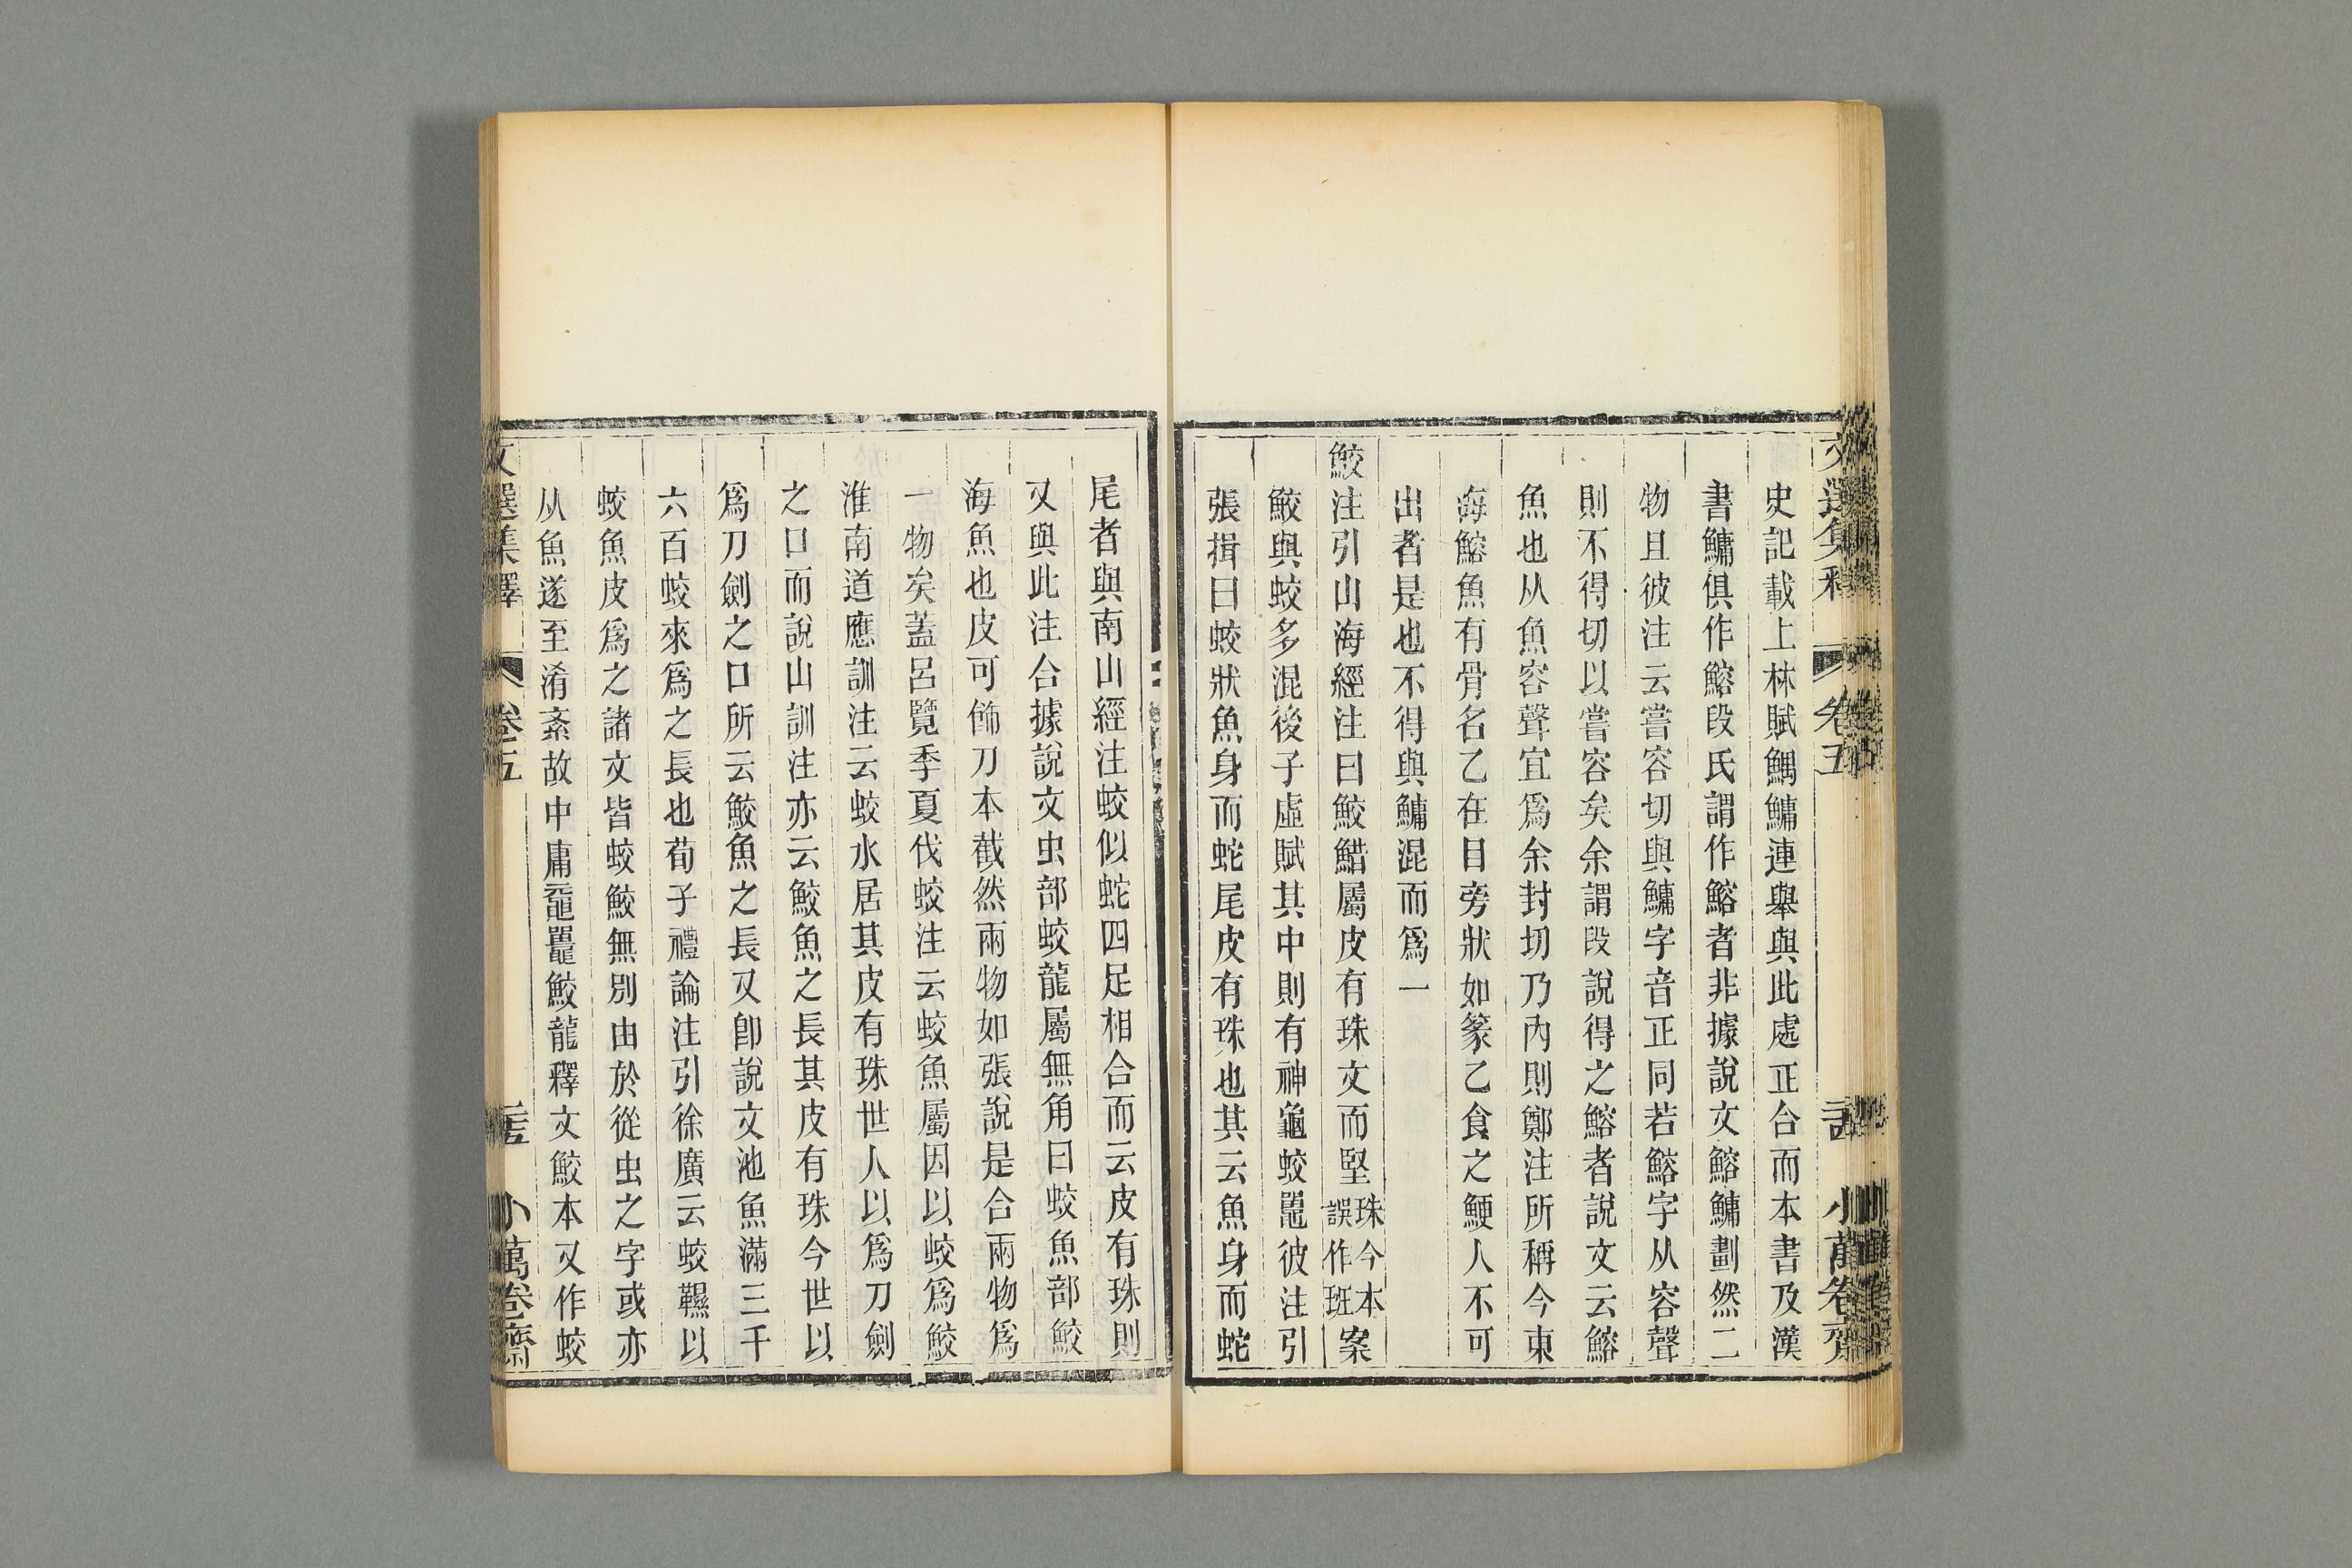 史記載上林賦鰅鱅連舉與此處正合而本書及漢
書鱅俱作鰫段氏謂作鰫者非據說文鰫鱅劃然二
物且彼注云嘗容切與鱅字音正同若鰫字从容聲
則不得切以嘗容矣余謂段說得之鰫者說文云鰫
魚也从魚容聲宜爲余封切乃內則鄭注所稱今東
海鰫魚有骨名乙在目旁狀如篆乙食之鯁人不可
出者是也不得與鱅混而爲一
鮫注引山海經注曰鮫䱜屬皮有珠文而堅珠今本誤作班案
鮫與蛟多混後子虛賦其中則有神龜蛟鼉彼注引
張揖曰蛟狀魚身而蛇尾皮有珠也其云魚身而蛇
尾者與南山經注蛟似蛇四足相合而云皮有珠則
又與此注合據說文虫部蛟龍屬無角曰蛟魚部鮫
海魚也皮可飾刀本截然兩物如張說是合兩物爲
一物矣蓋呂覽季夏伐蛟注云蛟魚屬因以蛟爲鮫
淮南道應訓注云蛟水居其皮有珠世人以爲刀劍
之口而說山訓注亦云鮫魚之長其皮有珠今世以
爲刀劍之口所云鮫魚之長又卽說文池魚滿三千
六百蛟來爲之長也荀子禮論注引徐廣云蛟韅以
蛟魚皮爲之諸文皆蛟鮫無別由於從虫之字或亦
从魚遂至淆紊故中庸黿鼉鮫龍釋文鮫本又作蛟
文選集釋 卷五 小萬卷齋